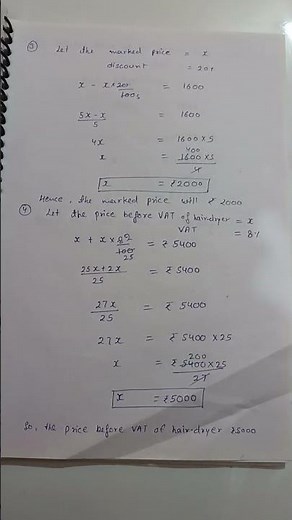 ③ Let the marked price = x
discount = 20%
x - x×20/100 5 = 1600
5x-x/5 = 1600
4x = 1600×5
x = 400 1600×5/4
x = ₹2000
Hence, the marked price will ₹ 2000
④ Let the price before VAT of hairdryer = x
VAT = 8%
x + x × 8 2/100 25 = ₹5400
25x+2x/25 = ₹5400
27x/25 = ₹ 5400
27x = ₹ 5400 ×25
x = ₹ 200 5400×25/27
x = ₹5000
So, the price before VAT of hair-dryer ₹5000